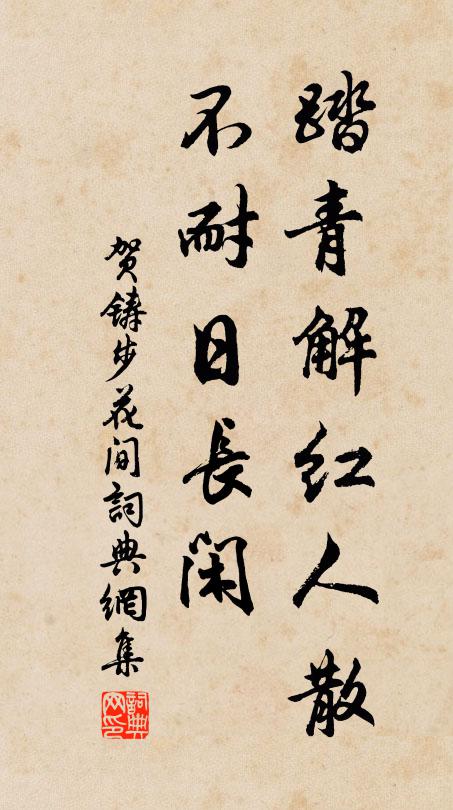 踏青解红人散
不耐日長閑
贺鑄步花间詞典網集
詞典网印